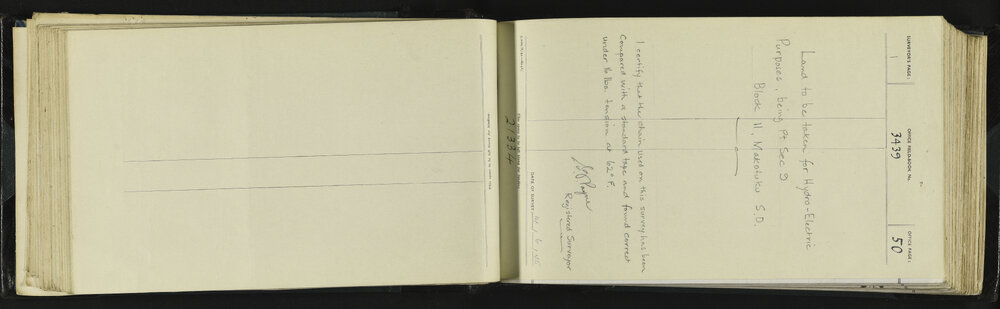 SURVEYOR'S PAGE: OFFICE FIELD-BOOK No. OFFICE PAGE:
1 3439 50
Land to be taken for Hydro-Electric
Purposes, being Pt Sec 9
Block 11, Makotuku S.D.
I certify that the chain used on this survey has been
Compared with a standard tape and found correct
under 16 lbs. tension at 62° F.
Registered Surveyor
DATE OF SURVEY
21334